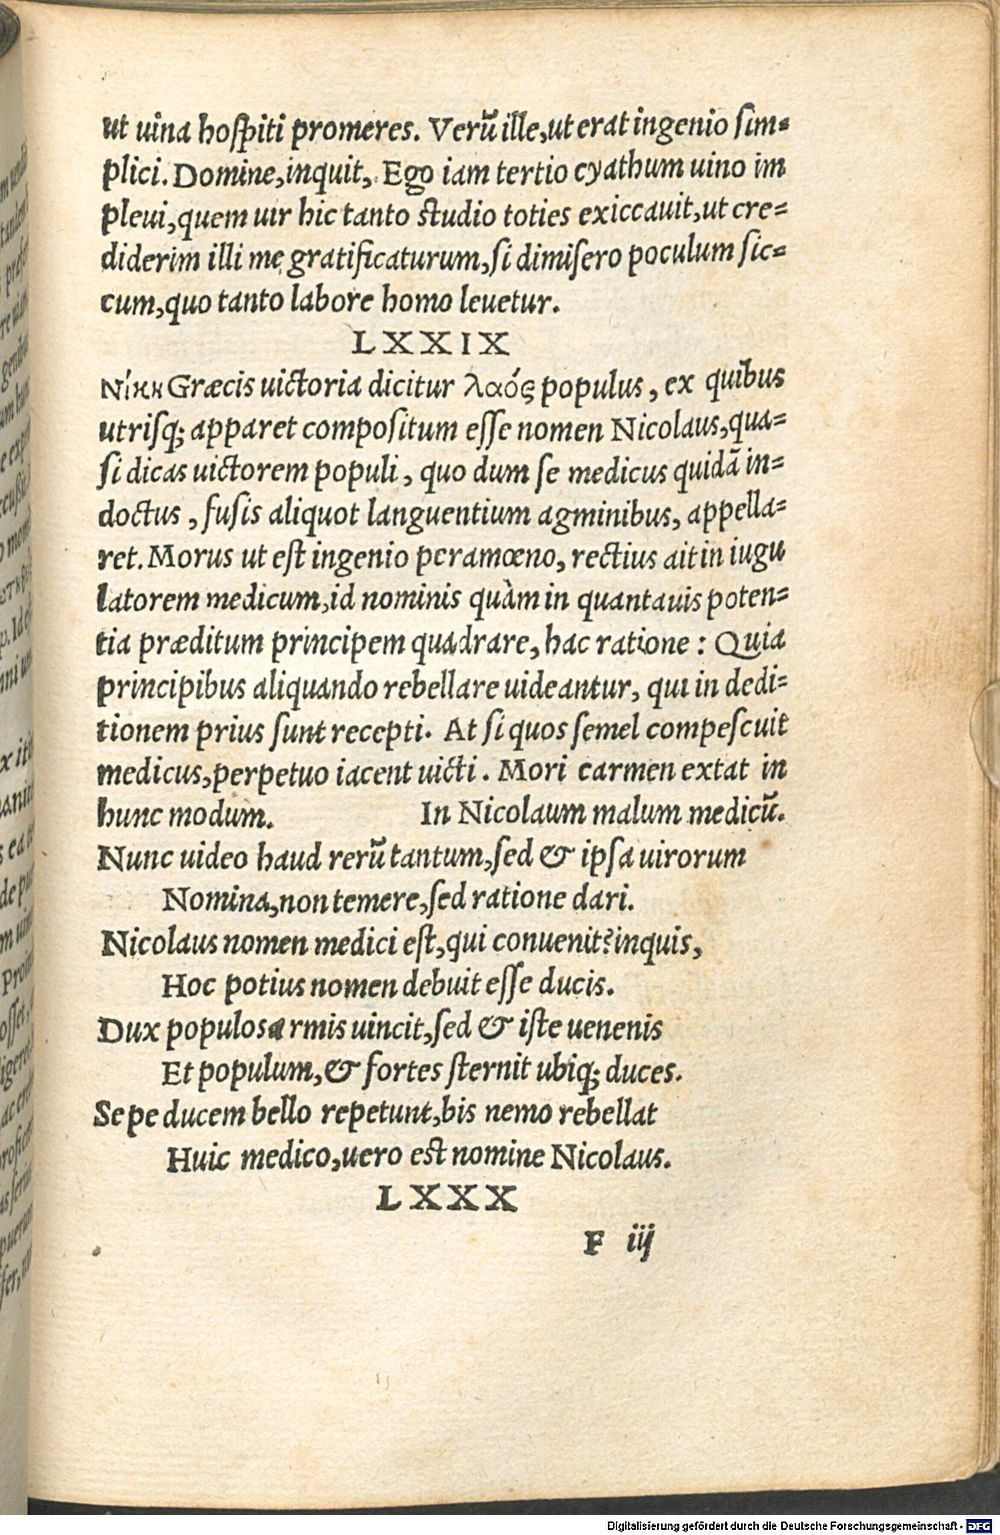 ut uina hospiti promeres. Verũ ille,ut erat ingenio sim-
plici. Domine,inquit, Ego iam tertio cyathum uino im
pleui,quem uir hic tanto studio toties exiccauit,ut cre-
diderim illi me gratificaturum,si dimisero poculum sic-
cum,quo tanto labore homo leuetur.
LXXIX
Νίκη Græcis uictoria dicitur λαός populus, ex quibus
utrisq; apparet compositum esse nomen Nicolaus,qua-
si dicas uictorem populi, quo dum se medicus quidã in-
doctus, fusis aliquot languentium agminibus, appella-
ret. Morus ut est ingenio peramœno, rectius ait in iugu
latorem medicum,id nominis quàm in quantauis poten-
tia præditum principem quadrare, hac ratione: Quia
principibus aliquando rebellare uideantur, qui in dedi-
tionem prius sunt recepti. At si quos semel compescuit
medicus,perpetuo iacent uicti. Mori carmen extat in
hunc modum. In Nicolaum malum medicũ.
Nunc uideo haud rerũ tantum,sed & ipsa uirorum
Nomina,non temere,sed ratione dari.
Nicolaus nomen medici est,qui conuenit?inquis,
Hoc potius nomen debuit esse ducis.
Dux populos armis uincit,sed & iste uenenis
Et populum,& fortes sternit ubiq; duces.
Sepe ducem bello repetunt,bis nemo rebellat
Huic medico,uero est nomine Nicolaus.
LXXX
F iij
Digitalisierung gefördert durch die Deutsche Forschungsgemeinschaft - DFG